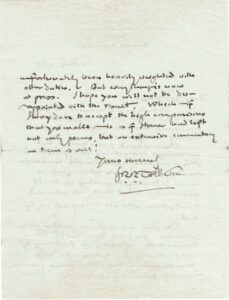 unfortunately been heavily weighted with
other duties. But everything is now
at press. I hope you will not be dis-
appointed with the result. Which if
I may dare to accept the high comparisons
that you make is as if Homer had left
not only poems, but an extensive commentary
on them as well!
Yours sincerely
JRRTolkien